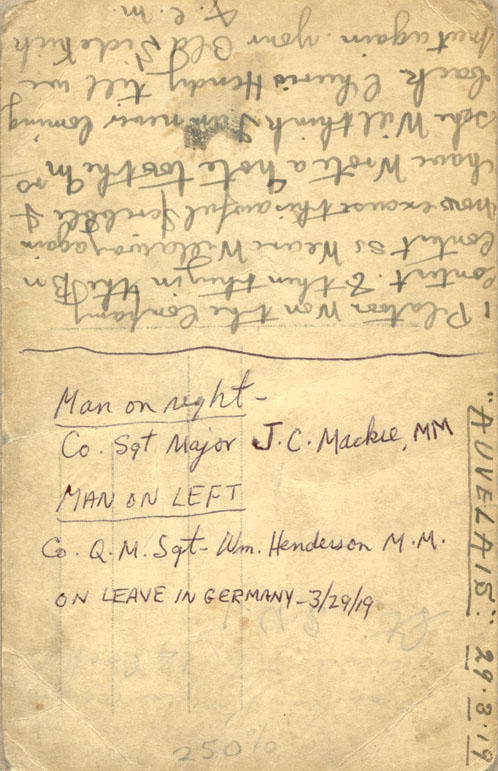 1 Platoon Won the Company
contest. & then in the Bn
contest so We are Well away again
now excuse this awful scribble I
have Wrote a note too the M so
she Will think I am never coming
back Cheerio Hendry till we
meet again. your Old Side Kick
J.C.M.
Man on right -
Co. Sgt Major J.C. Mackie, MM
MAN ON LEFT
Co. Q.M. Sgt - Wm. Henderson M.M.
ON LEAVE IN GERMANY - 3/29/19
"AUVELAIS." 29.3.19
250%